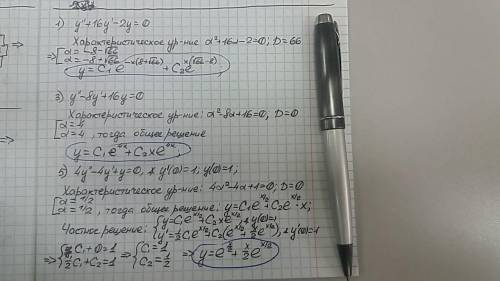 1) y''+16y'-2y=0
Характеристическое ур-ние α²+16α-2=0; D=66
⇒[α=-8-√66
[α=-8+√66
y=C₁e^(-x(8+√66))+C₂e^(x(√66-8))
3) y''-8y'+16y=0
Характеристическое ур-ние: α²-8α+16=0, D=0
[α=4
[α=4, тогда общее решение
5) 4y''-4y'+y=0, y'(0)=1; y(0)=1;
Характеристическое ур-ние: 4α²-4α+1=0; D=0
[α=1/2
[α=1/2, тогда общее решение: y=C₁e^(x/2)+C₂e^(x/2)·x;
Частное решение: {y=C₁e^(x/2)+C₂xe^(x/2), & y(0)=1
{y'=½C₁e^(x/2)+C₂(e^(x/2)+x/2e^(x/2)), & y'(0)=1
⇒{C₁+0=1
{½C₁+C₂=1 ⇒{C₁=1
{C₂=½ ⇒ y=e^(x/2)+x/2e^(x/2)